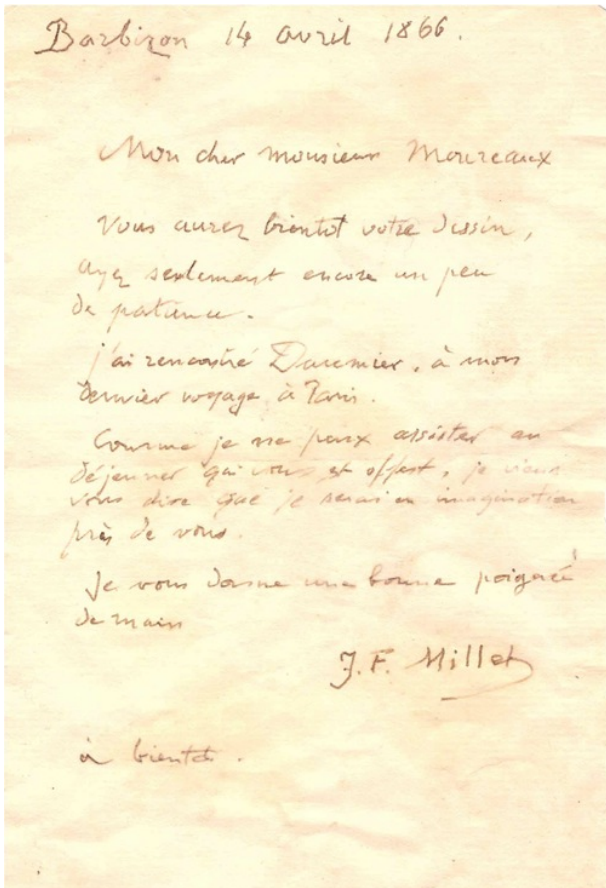 Barbizon 14 avril 1866.
Mon cher monsieur Moureaux
Vous aurez bientot votre dessin,
ayez seulement encore un peu
de patience.
j'ai rencontré Daumier, à mon
dernier voyage à Paris.
Comme je ne peux assister au
déjeuner qui vous est offert, je viens
vous dire que je serai en imagination
près de vous.
Je vous donne une bonne poignée
de main
J. F. Millet
à bientot.